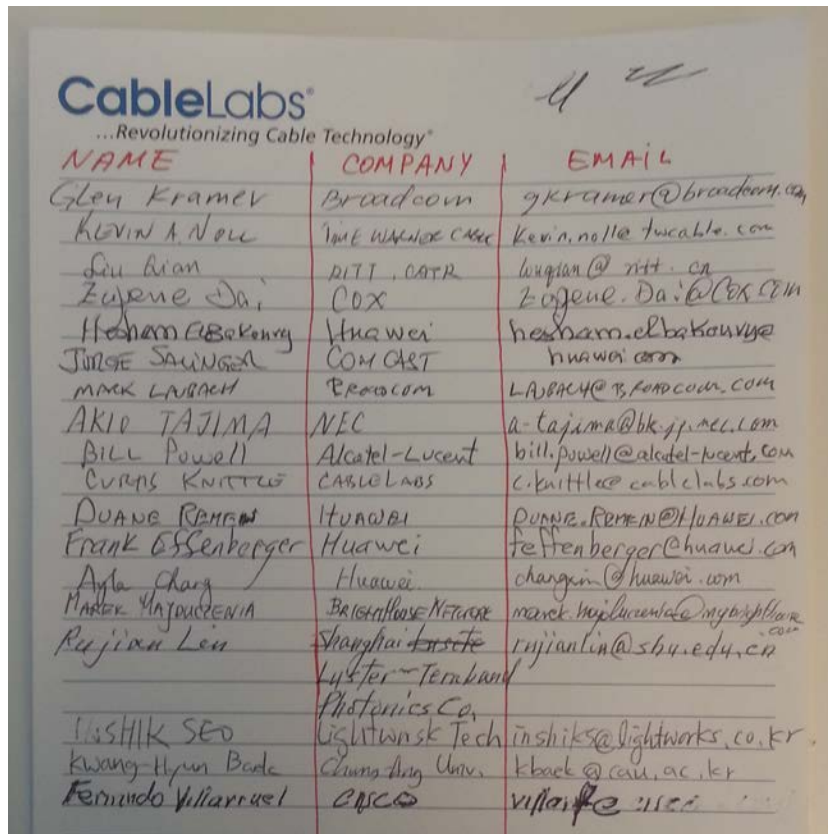 CableLabs®
...Revolutionizing Cable Technology®
NAME COMPANY EMAIL
Glen Kramer Broadcom gkramer@broadcom.com
KEVIN A. NOLL TIME WARNER CABLE kevin.noll@twcable.com
Liu Qian RITT, CATR liuqian@ritt.cn
Eugene Dai COX Eugene.Dai@cox.com
Hesham ElBakoury Huawei hesham.elbakoury@
JORGE SALINGER COMCAST huawei.com
MARK LAUBACH BROADCOM LAUBACH@BROADCOM.COM
AKIO TAJIMA NEC a-tajima@bk.jp.nec.com
BILL Powell Alcatel-Lucent bill.powell@alcatel-lucent.com
CURTIS KNITTLE CABLELABS c.knittle@cablelabs.com
DUANE REMEIN HUAWEI DUANE.REMEIN@HUAWEI.COM
Frank Effenberger Huawei feffenberger@huawei.com
Ayla Chang Huawei changxin@huawei.com
MAREK HAJDUCZENIA BRIGHTHOUSE NETWORK marek.hajduczenia@mybrighthouse
.com
Rujian Lin Shanghai rujianlin@shu.edu.cn
Luster-Teraband
Photonics Co,
INSHIK SEO Lightworks Tech inshiks@lightworks.co.kr
Kwang-Hyun Baek Chung-Ang Univ. kbaek@cau.ac.kr
Fernando Villarruel CISCO